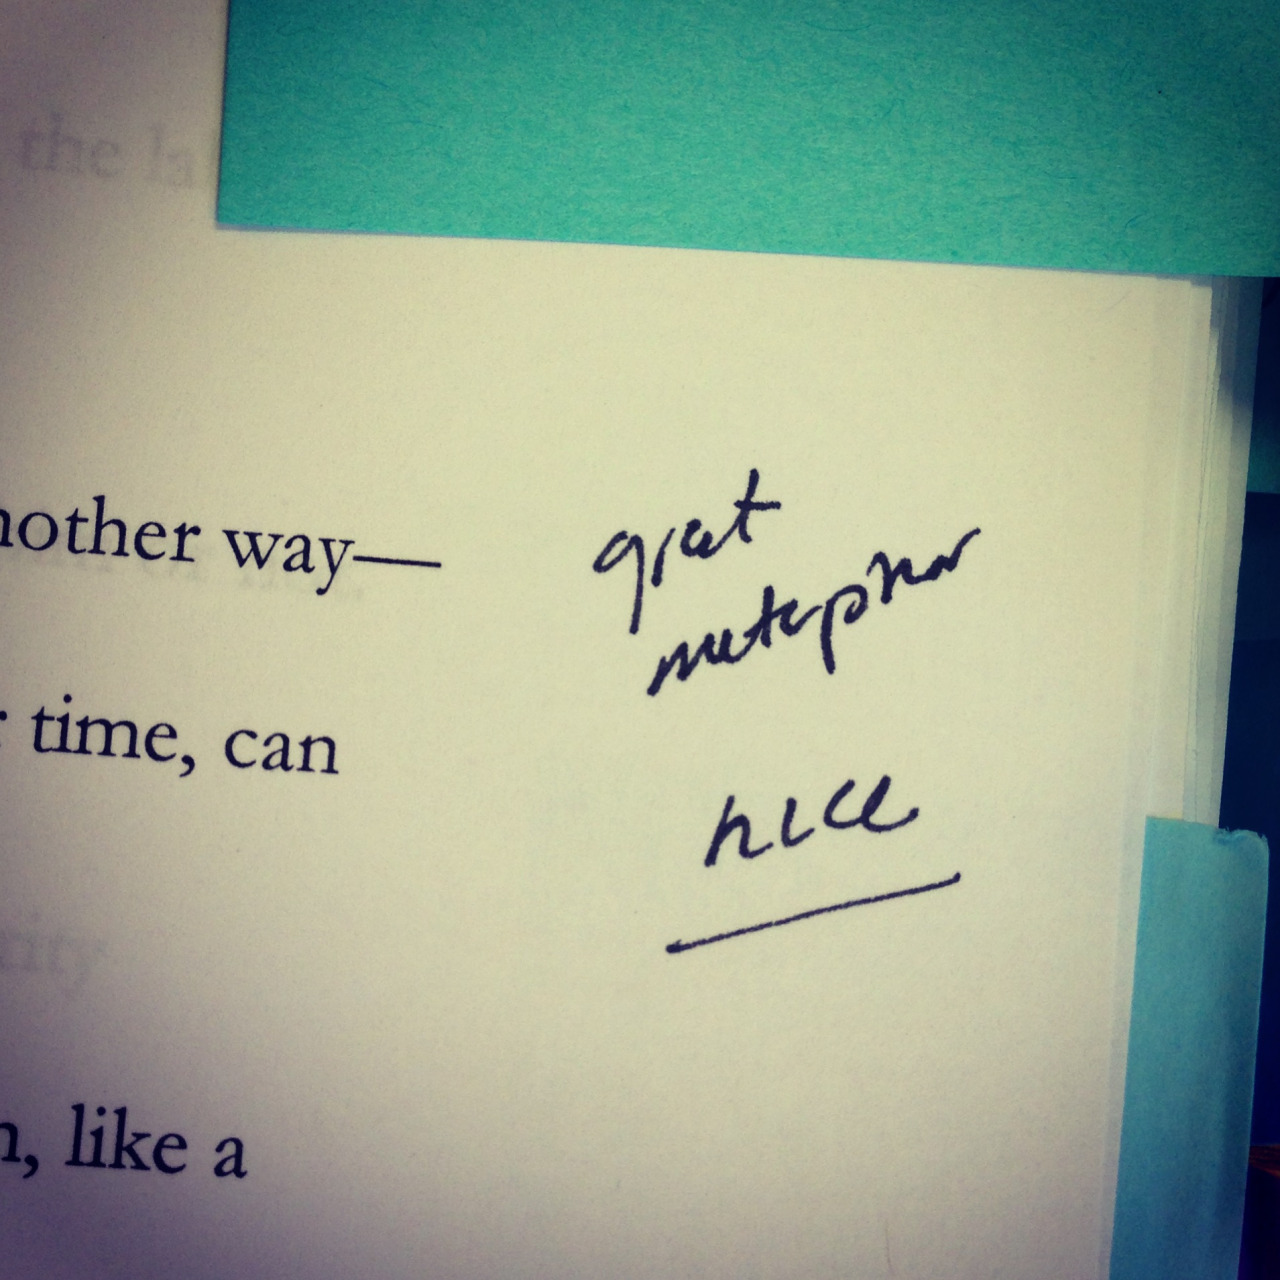 the la
nother way—
great
metaphor
time, can
nice
city
, like a